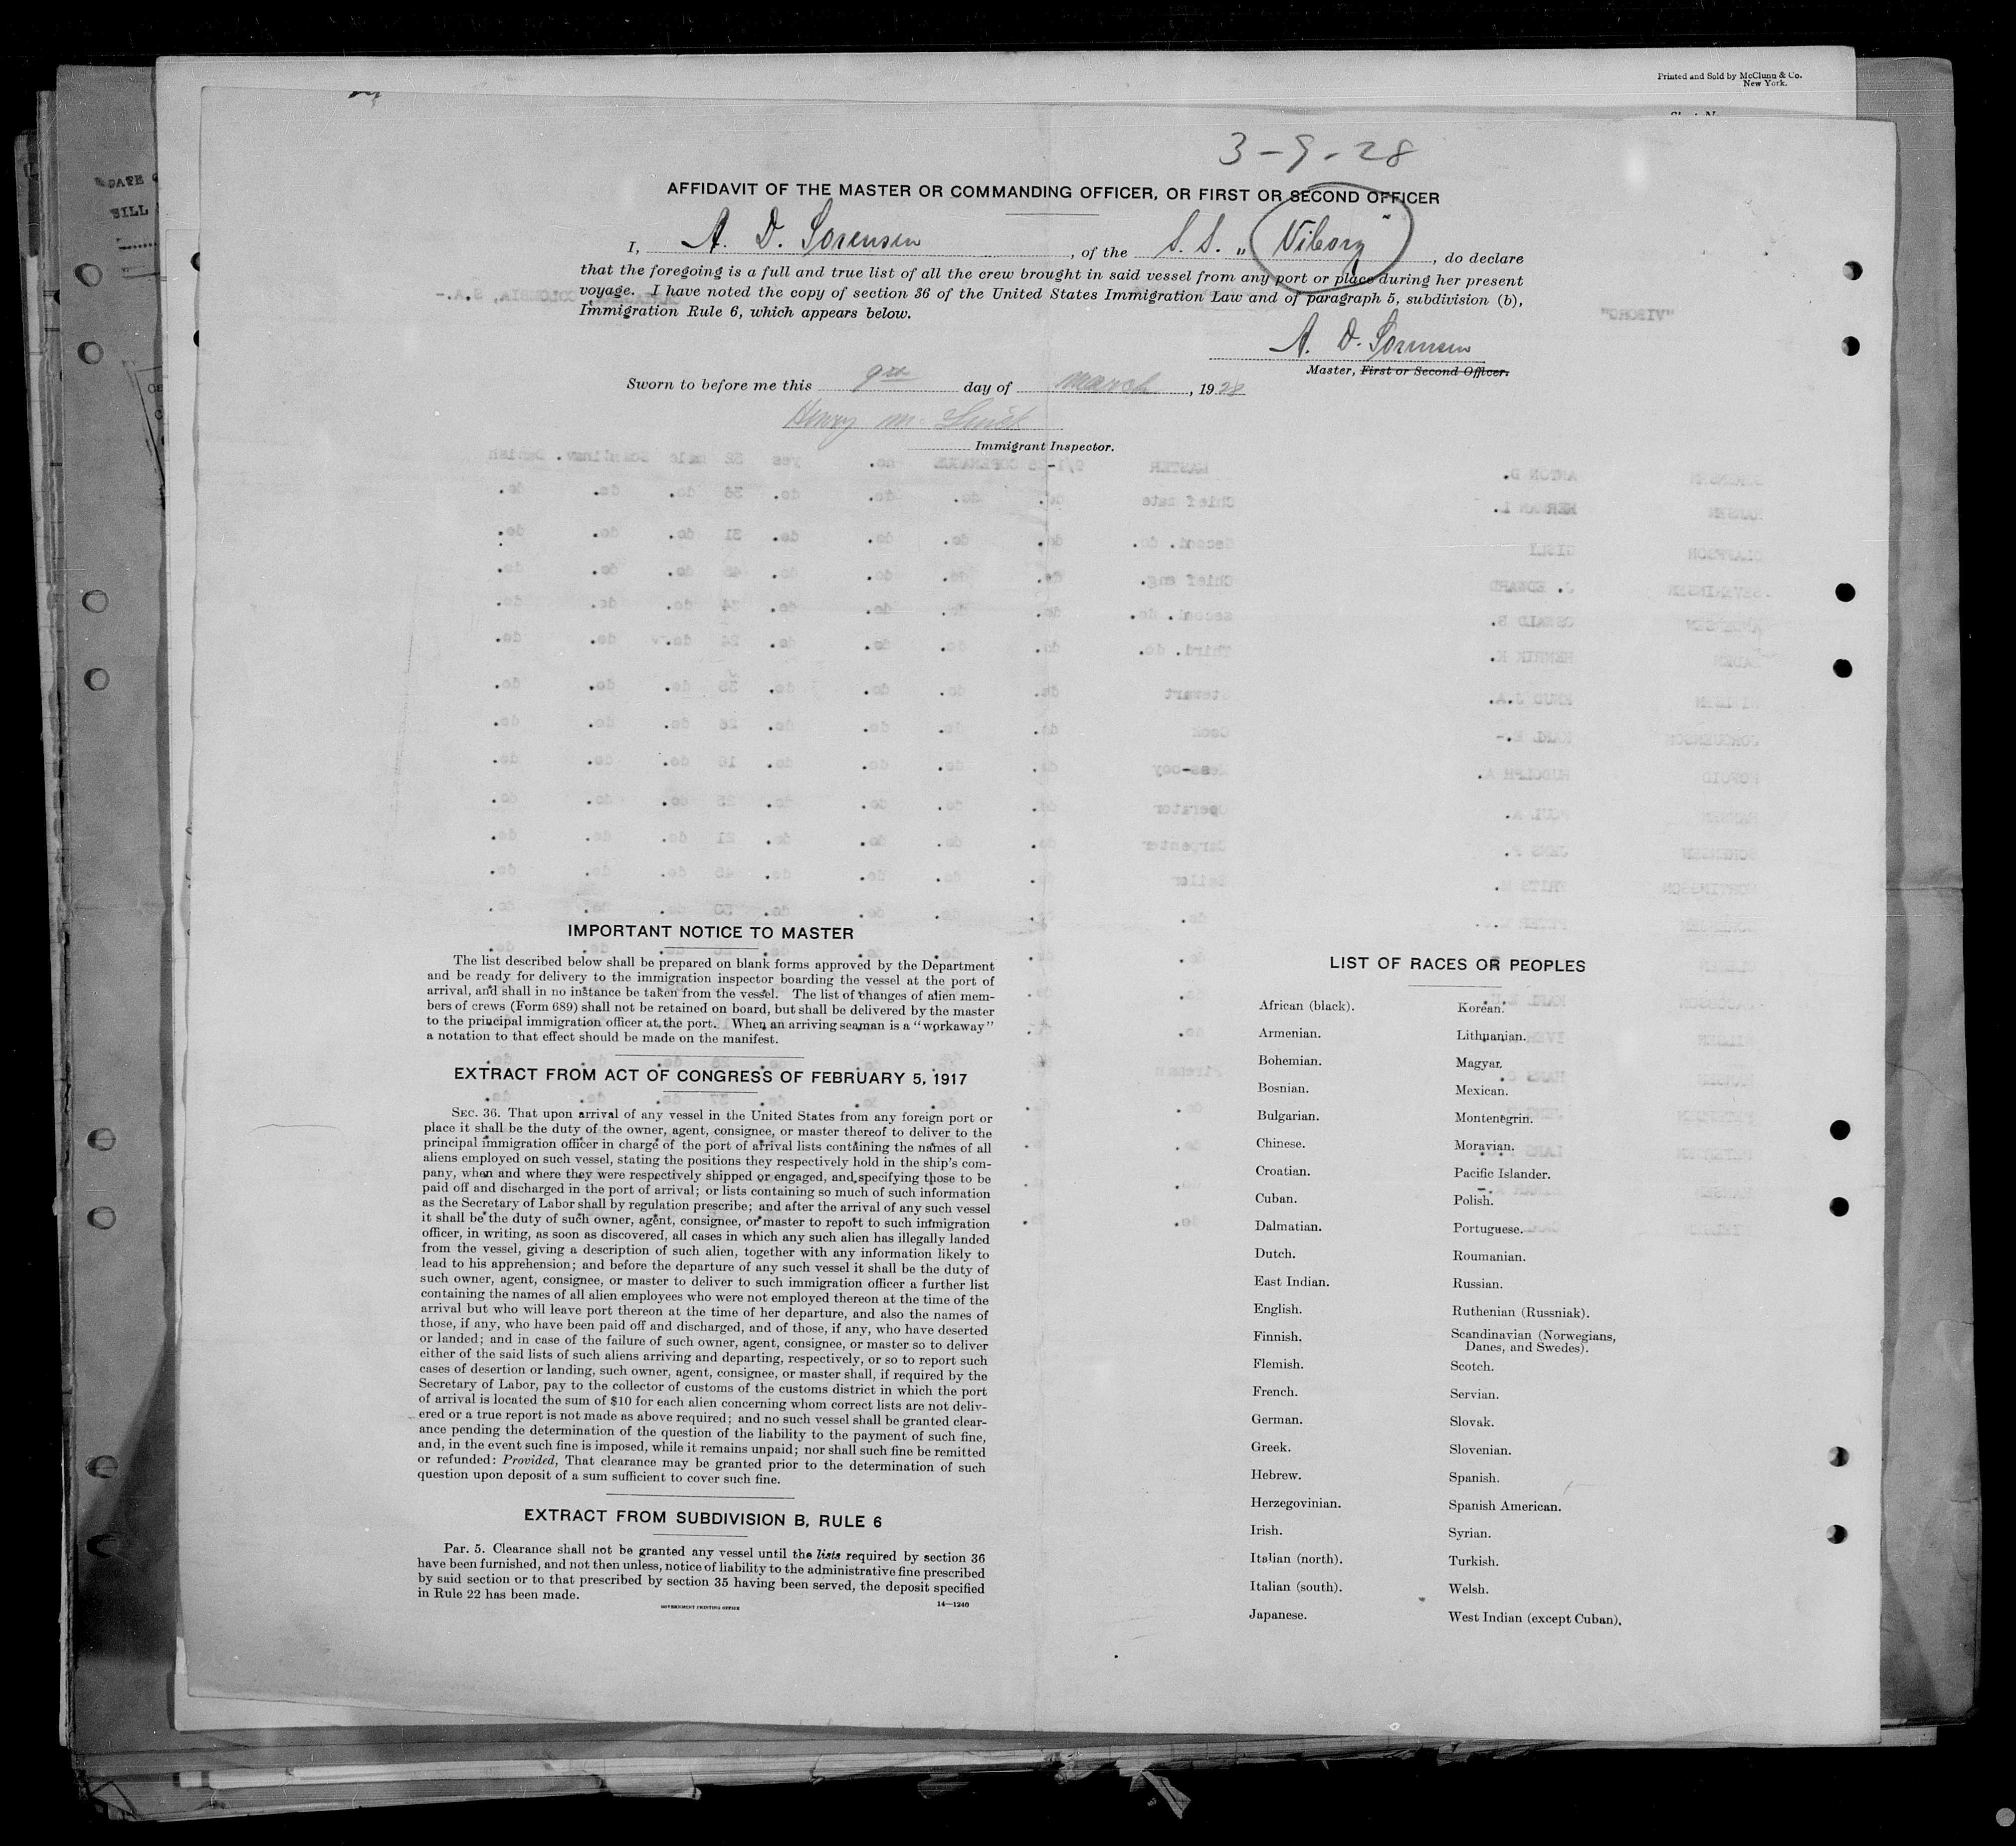 Printed and Sold by McClunn & Co.
New York.
3-9-28
AFFIDAVIT OF THE MASTER OR COMMANDING OFFICER, OR FIRST OR SECOND OFFICER
I, A. D. Sorensen, of the S.S. "Viborg", do declare
that the foregoing is a full and true list of all the crew brought in said vessel from any port or place during her present
voyage. I have noted the copy of section 36 of the United States Immigration Law and of paragraph 5, subdivision (b),
Immigration Rule 6, which appears below.
A. D. Sorensen
Master, First or Second Officer.
Sworn to before me this 9th day of March, 1928
Henry M.
Immigrant Inspector.
IMPORTANT NOTICE TO MASTER
The list described below shall be prepared on blank forms approved by the Department
and be ready for delivery to the immigration inspector boarding the vessel at the port of
arrival, and shall in no instance be taken from the vessel. The list of changes of alien mem-
bers of crews (Form 689) shall not be retained on board, but shall be delivered by the master
to the principal immigration officer at the port. When an arriving seaman is a "workaway"
a notation to that effect should be made on the manifest.
EXTRACT FROM ACT OF CONGRESS OF FEBRUARY 5, 1917
SEC. 36. That upon arrival of any vessel in the United States from any foreign port or
place it shall be the duty of the owner, agent, consignee, or master thereof to deliver to the
principal immigration officer in charge of the port of arrival lists containing the names of all
aliens employed on such vessel, stating the positions they respectively hold in the ship's com-
pany, when and where they were respectively shipped or engaged, and specifying those to be
paid off and discharged in the port of arrival; or lists containing so much of such information
as the Secretary of Labor shall by regulation prescribe; and after the arrival of any such vessel
it shall be the duty of such owner, agent, consignee, or master to report to such immigration
officer, in writing, as soon as discovered, all cases in which any such alien has illegally landed
from the vessel, giving a description of such alien, together with any information likely to
lead to his apprehension; and before the departure of any such vessel it shall be the duty of
such owner, agent, consignee, or master to deliver to such immigration officer a further list
containing the names of all alien employees who were not employed thereon at the time of the
arrival but who will leave port thereon at the time of her departure, and also the names of
those, if any, who have been paid off and discharged, and of those, if any, who have deserted
or landed; and in case of the failure of such owner, agent, consignee, or master so to deliver
either of the said lists of such aliens arriving and departing, respectively, or so to report such
cases of desertion or landing, such owner, agent, consignee, or master shall, if required by the
Secretary of Labor, pay to the collector of customs of the customs district in which the port
of arrival is located the sum of $10 for each alien concerning whom correct lists are not deliv-
ered or a true report is not made as above required; and no such vessel shall be granted clear-
ance pending the determination of the question of the liability to the payment of such fine,
and, in the event such fine is imposed, while it remains unpaid; nor shall such fine be remitted
or refunded: Provided, That clearance may be granted prior to the determination of such
question upon deposit of a sum sufficient to cover such fine.
EXTRACT FROM SUBDIVISION B, RULE 6
Par. 5. Clearance shall not be granted any vessel until the lists required by section 36
have been furnished, and not then unless, notice of liability to the administrative fine prescribed
by said section or to that prescribed by section 35 having been served, the deposit specified
in Rule 22 has been made.
GOVERNMENT PRINTING OFFICE 14—1240
LIST OF RACES OR PEOPLES
African (black).
Armenian.
Bohemian.
Bosnian.
Bulgarian.
Chinese.
Croatian.
Cuban.
Dalmatian.
Dutch.
East Indian.
English.
Finnish.
Flemish.
French.
German.
Greek.
Hebrew.
Herzegovinian.
Irish.
Italian (north).
Italian (south).
Japanese.
Korean.
Lithuanian.
Magyar.
Mexican.
Montenegrin.
Moravian.
Pacific Islander.
Polish.
Portuguese.
Roumanian.
Russian.
Ruthenian (Russniak).
Scandinavian (Norwegians,
Danes, and Swedes).
Scotch.
Servian.
Slovak.
Slovenian.
Spanish.
Spanish American.
Syrian.
Turkish.
Welsh.
West Indian (except Cuban).